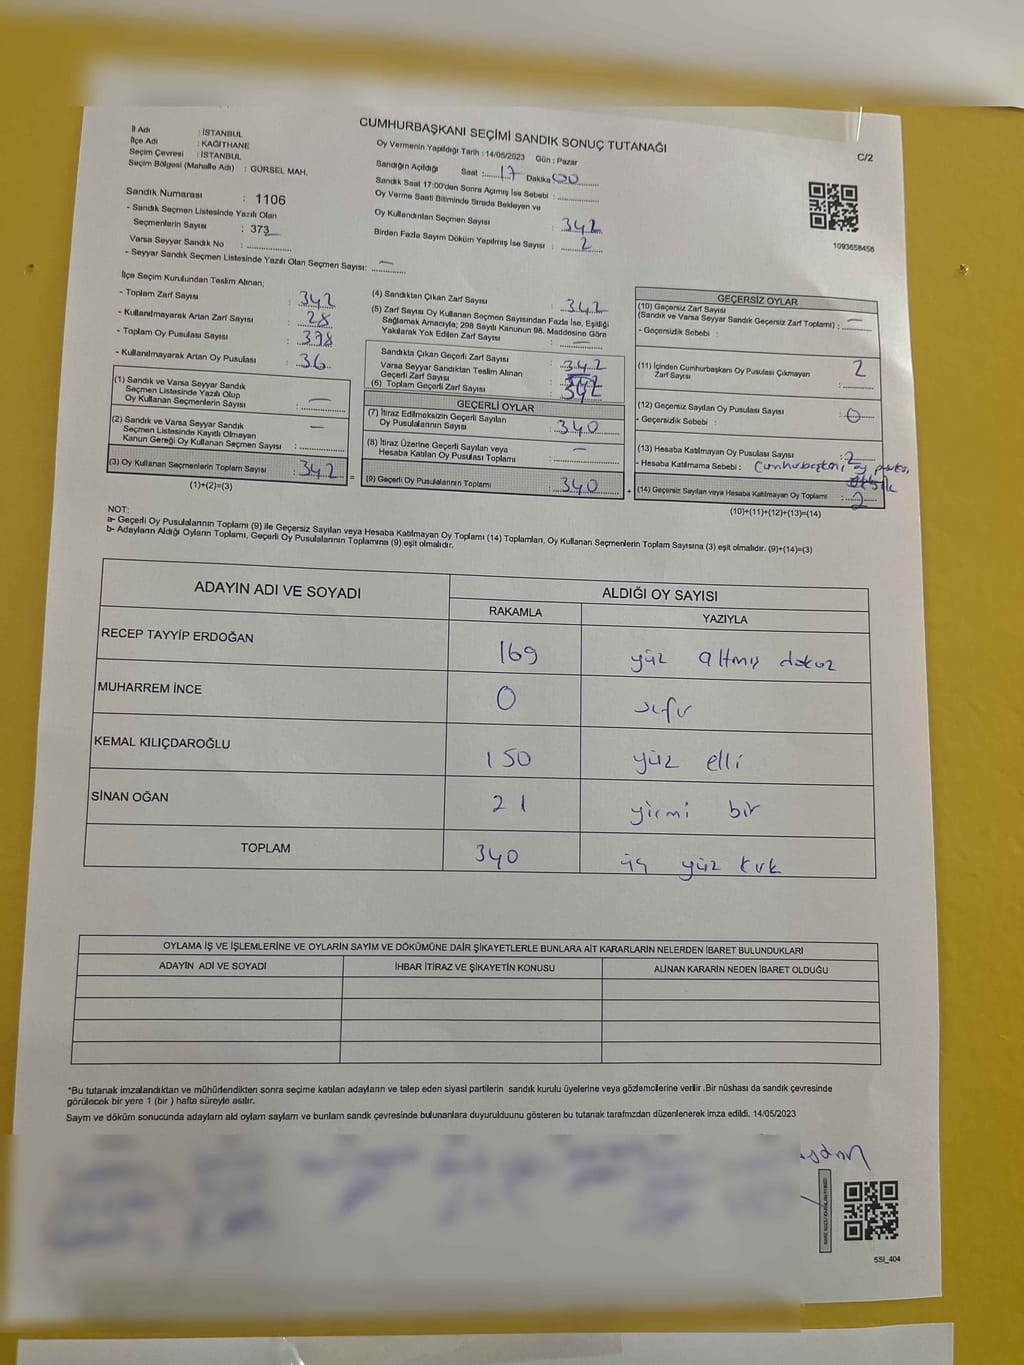 CUMHURBAŞKANI SEÇİMİ SANDIK SONUÇ TUTANAĞI
C/2
İl Adı : İSTANBUL
İlçe Adı : KAĞITHANE
Seçim Çevresi : İSTANBUL
Seçim Bölgesi (Mahalle Adı) : GÜRSEL MAH.
Sandık Numarası : 1106
- Sandık Seçmen Listesinde Yazılı Olan
Seçmenlerin Sayısı : 373
Varsa Seyyar Sandık No :
- Seyyar Sandık Seçmen Listesinde Yazılı Olan Seçmen Sayısı: —
Oy Vermenin Yapıldığı Tarih : 14/05/2023 Gün : Pazar
Sandığın Açıldığı Saat : 17 Dakika 00
Sandık Saat 17:00'den Sonra Açılmış İse Sebebi :
Oy Verme Saati Bitiminde Sırada Bekleyen ve
Oy Kullandırılan Seçmen Sayısı 342
Birden Fazla Sayım Döküm Yapılmış İse Sayısı : 2
1093658456
İlçe Seçim Kurulundan Teslim Alınan;
- Toplam Zarf Sayısı : 342
- Kullanılmayarak Artan Zarf Sayısı : 28
- Toplam Oy Pusulası Sayısı : 398
- Kullanılmayarak Artan Oy Pusulası : 36
(1) Sandık ve Varsa Seyyar Sandık
Seçmen Listesinde Yazılı Olup
Oy Kullanan Seçmenlerin Sayısı : —
(2) Sandık ve Varsa Seyyar Sandık
Seçmen Listesinde Kayıtlı Olmayan
Kanun Gereği Oy Kullanan Seçmen Sayısı : —
(3) Oy Kullanan Seçmenlerin Toplam Sayısı : 342 =
(1)+(2)=(3)
(4) Sandıktan Çıkan Zarf Sayısı : 342
(5) Zarf Sayısı Oy Kullanan Seçmen Sayısından Fazla İse, Eşitliği
Sağlamak Amacıyla; 298 Sayılı Kanunun 98. Maddesine Göre
Yakılarak Yok Edilen Zarf Sayısı : —
Sandıkta Çıkan Geçerli Zarf Sayısı : 342
Varsa Seyyar Sandıktan Teslim Alınan
Geçerli Zarf Sayısı :
(6) Toplam Geçerli Zarf Sayısı : 342
GEÇERLİ OYLAR
(7) İtiraz Edilmeksizin Geçerli Sayılan
Oy Pusulalarının Sayısı : 340
(8) İtiraz Üzerine Geçerli Sayılan veya
Hesaba Katılan Oy Pusulası Toplamı : —
(9) Geçerli Oy Pusulalarının Toplamı : 340 +
GEÇERSİZ OYLAR
(10) Geçersiz Zarf Sayısı
(Sandık ve Varsa Seyyar Sandık Geçersiz Zarf Toplamı) : —
- Geçersizlik Sebebi :
(11) İçinden Cumhurbaşkanı Oy Pusulası Çıkmayan
Zarf Sayısı : 2
(12) Geçersiz Sayılan Oy Pusulası Sayısı : 0
- Geçersizlik Sebebi :
(13) Hesaba Katılmayan Oy Pusulası Sayısı : 2
- Hesaba Katılmama Sebebi : Cumhurbaşkanı oy
(14) Geçersiz Sayılan veya Hesaba Katılmayan Oy Toplamı : 2
(10)+(11)+(12)+(13)=(14)
NOT:
a- Geçerli Oy Pusulalarının Toplamı (9) ile Geçersiz Sayılan veya Hesaba Katılmayan Oy Toplamı (14) Toplamları, Oy Kullanan Seçmenlerin Toplam Sayısına (3) eşit olmalıdır. (9)+(14)=(3)
b- Adayların Aldığı Oyların Toplamı, Geçerli Oy Pusulalarının Toplamına (9) eşit olmalıdır.
ADAYIN ADI VE SOYADI ALDIĞI OY SAYISI
RAKAMLA YAZIYLA
RECEP TAYYİP ERDOĞAN 169 yüz altmış dokuz
MUHARREM İNCE 0 sıfır
KEMAL KILIÇDAROĞLU 150 yüz elli
SİNAN OĞAN 21 yirmi bir
TOPLAM 340 üç yüz kırk
OYLAMA İŞ VE İŞLEMLERİNE VE OYLARIN SAYIM VE DÖKÜMÜNE DAİR ŞİKAYETLERLE BUNLARA AİT KARARLARIN NELERDEN İBARET BULUNDUKLARI
ADAYIN ADI VE SOYADI İHBAR İTİRAZ VE ŞİKAYETİN KONUSU ALINAN KARARIN NEDEN İBARET OLDUĞU
*Bu tutanak imzalandıktan ve mühürlendikten sonra seçime katılan adayların ve talep eden siyasi partilerin sandık kurulu üyelerine veya gözlemcilerine verilir .Bir nüshası da sandık çevresinde
görülecek bir yere 1 (bir ) hafta süreyle asılır.
Sayım ve döküm sonucunda adayların ald oyların sayların ve bunların sandk çevresinde bulunanlara duyurulduunu gösteren bu tutanak tarafmızdan düzenlenerek imza edildi. 14/05/2023
SSI_404